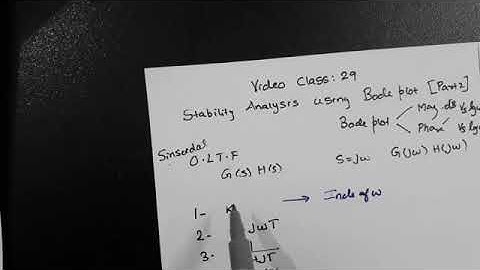 Video Class: 29
Stability Analysis using Bode plot [Part 2]
Bode plot
Mag dB Vs log
Phase Vs log
Sinsodal
O.L.T.F
G(s) H(s)
S=jω G(jω) H(jω)
1- K → Inde of ω
2- jωT
3-